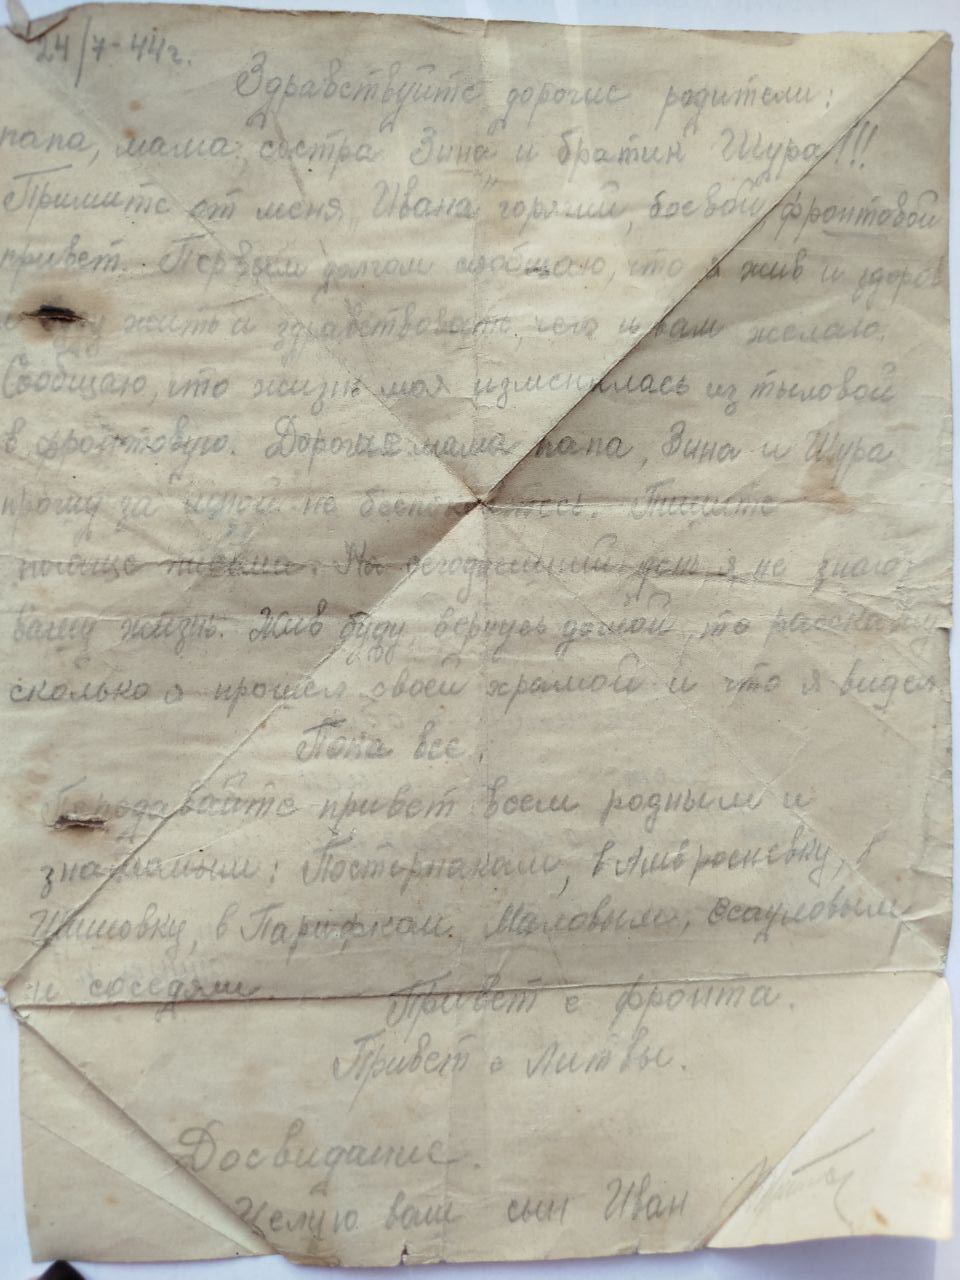 24/7-44г.
Здравствуйте дорогие родители:
папа, мама, сестра Зина и братик Шура!!!
Примите от меня, Ивана горячий, боевой, фронтовой
привет. Первым долгом сообщаю, что я жив и здоров
жить и здравствовать, чего и вам желаю.
Сообщаю, что жизнь моя изменилась из тыловой
в фронтовую. Дорогие мама папа, Зина и Шура
прошу за мной не беспокойтесь. Пишите
почаще письма. На сегодняшний день я не знаю
вашу жизнь. Жив буду, вернусь домой, то расскажу
сколько я прошел своей и что я видел.
Пока все.
Передавайте привет всем родным и
знакомым: Постернакам, в Амвросиевку, в
в Маловым, Есауловым
и соседям. Привет с фронта.
Привет с Литвы.
Досвидание.
Целую ваш сын Иван